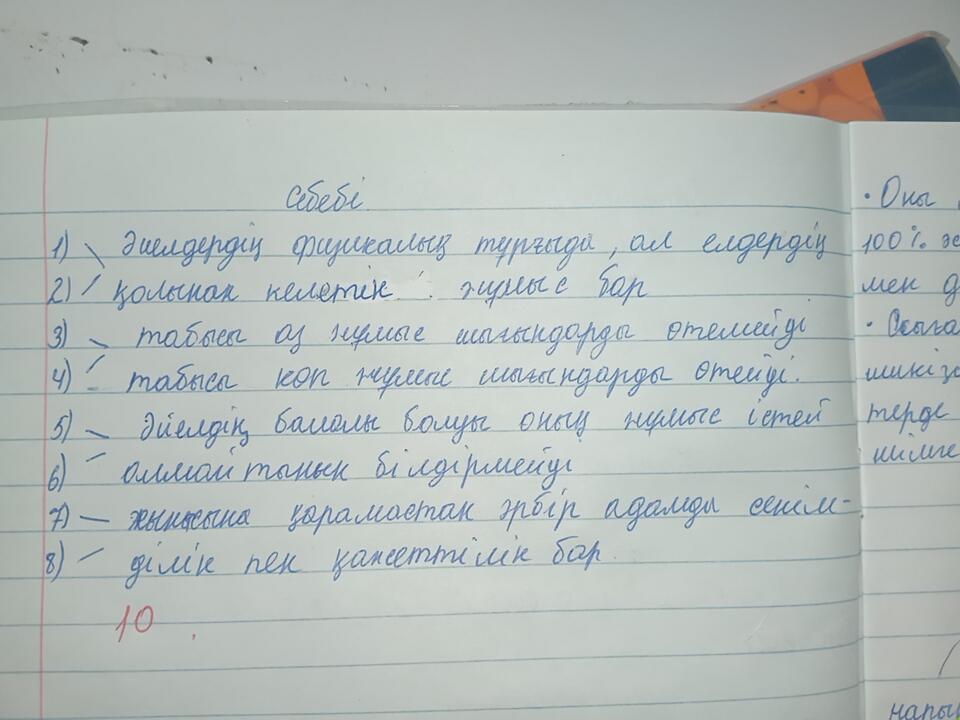 Себебі
1) Әиелдердің физикалық тұрғыда, ал елдердің
2) қолынан келетін жұмыс бар
3) табысы аз жұмыс шығындарды өтемейді
4) табысы көп жұмыс шығындарды өтейді.
5) Әйелдің балалы болуы оның жұмыс істей
6) алмайтынын білдірмейді
7) – жынысына қарамастан әрбір адамды сенім-
8) ділік пен қажеттілік бар.
10
• Оны
100%
мен
• Сығ
шикіз
терде